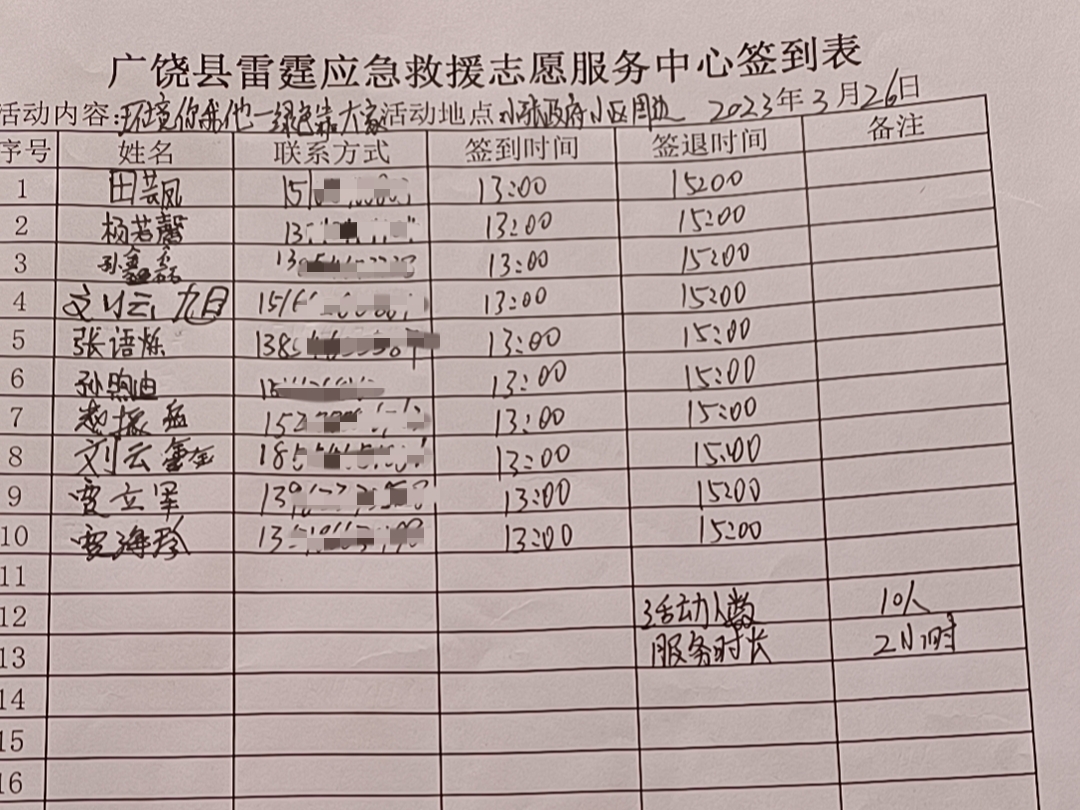 广饶县雷霆应急救援志愿服务中心签到表
活动内容:环境你我他一绿色靠大家 活动地点:小张政府小区周边 2023年3月26日
序号 姓名 联系方式 签到时间 签退时间 备注
1 田芸凤 15 13:00 15:00
2 杨若馨 13 13:00 15:00
3 孙鑫磊 13 13:00 15:00
4 15 13:00 15:00
5 张语烁 138 13:00 15:00
6 孙煦迪 15 13:00 15:00
7 152 13:00 15:00
8 刘云 185 13:00 15:00
9 13 13:00 15:00
10 海珍 13 13:00 15:00
11
12 活动人数 10人
13 服务时长 2小时
14
15
16